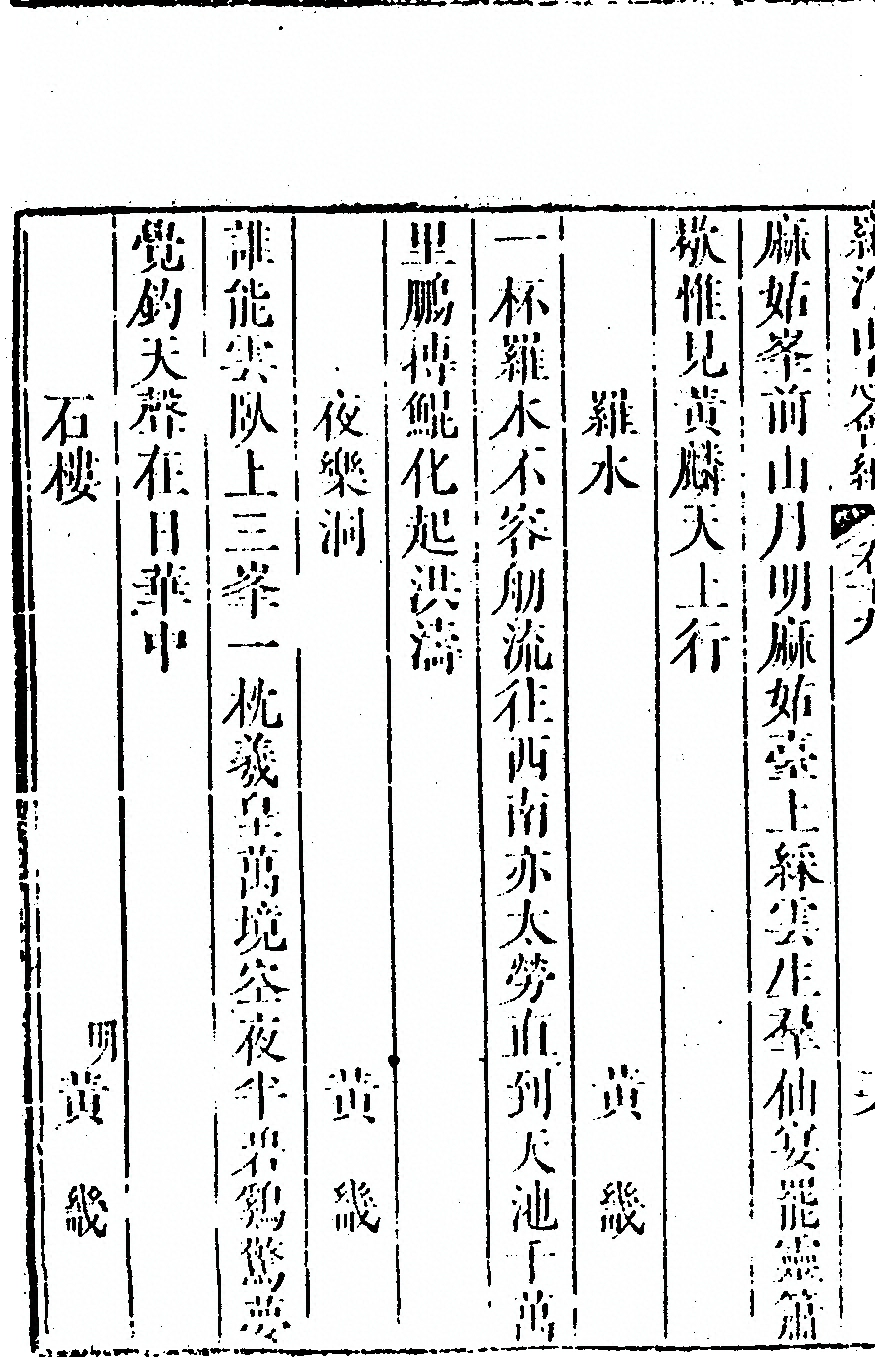 羅浮山志會編 卷十九
麻姑峯前山月明麻姑臺上綵雲生羣仙宴罷靈簫
歇惟見黃麟天上行
羅水 黃幾
一杯羅水不容舠流往西南亦太勞直到天池千萬
里鵬摶鯤化起洪濤
夜樂洞 黃幾
誰能雲臥上三峯一枕羲皇萬境空夜半岩鷄驚夢
覺鈞天聲在日華中
石樓 明黃幾